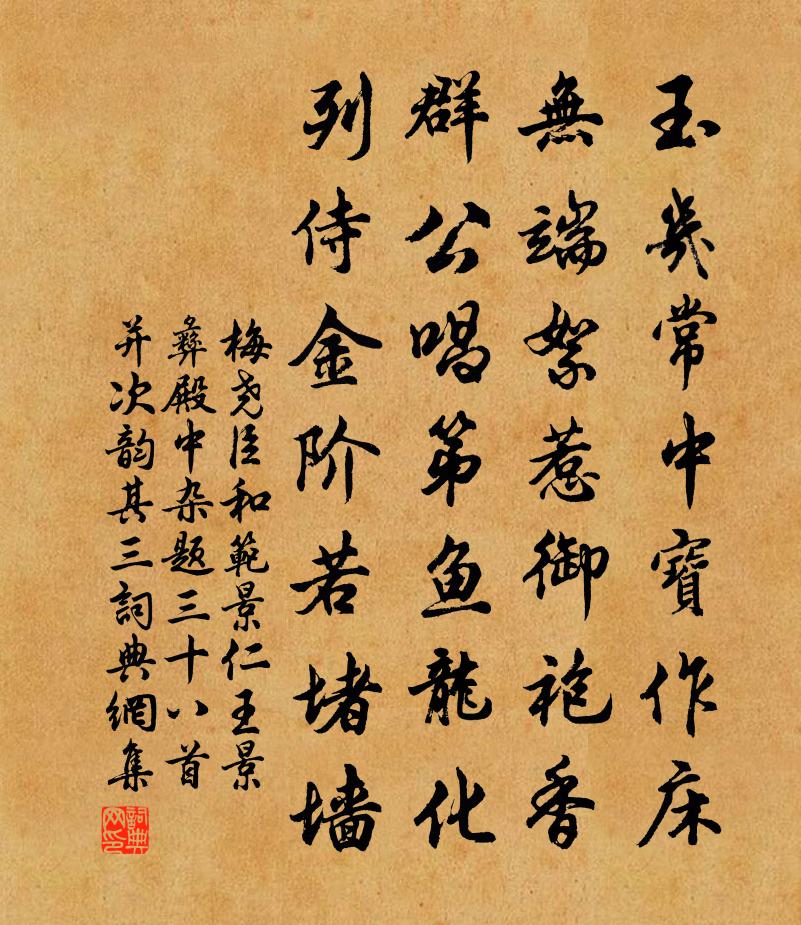 玉幾常中寶作床
無端絮惹御袍香
群公唱第鱼龍化
列侍金阶若堵墙
梅尧臣和範景仁王景
彝殿中杂题三十八首
并次韵其三詞典網集
詞典
网印